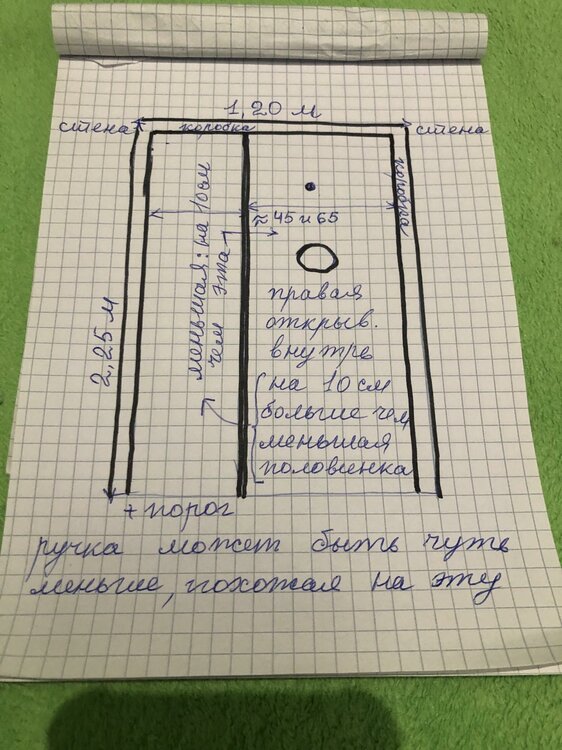 1,20 м
стена коробка стена
коробка
2,25 м
меньшая: на 10 см
чем эта
≈ 45 и 65
правая
открыв.
внутрь
на 10 см
больше чем
меньшая
половинка
+ порог
ручка может быть чуть
меньше, похожая на эту